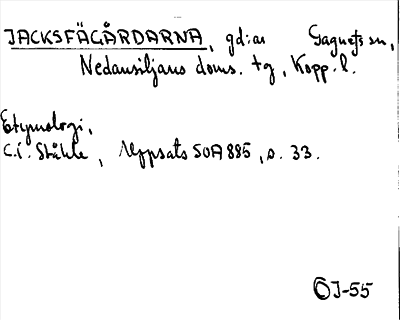 JACKSFÄGÅRDARNA, gd:ar Gagnefs sn,
Nedansiljans doms. tg, Kopp. l.
Etymologi,
C.I. Ståhle, Uppsats SOA 885, s. 33.
ÖJ-55